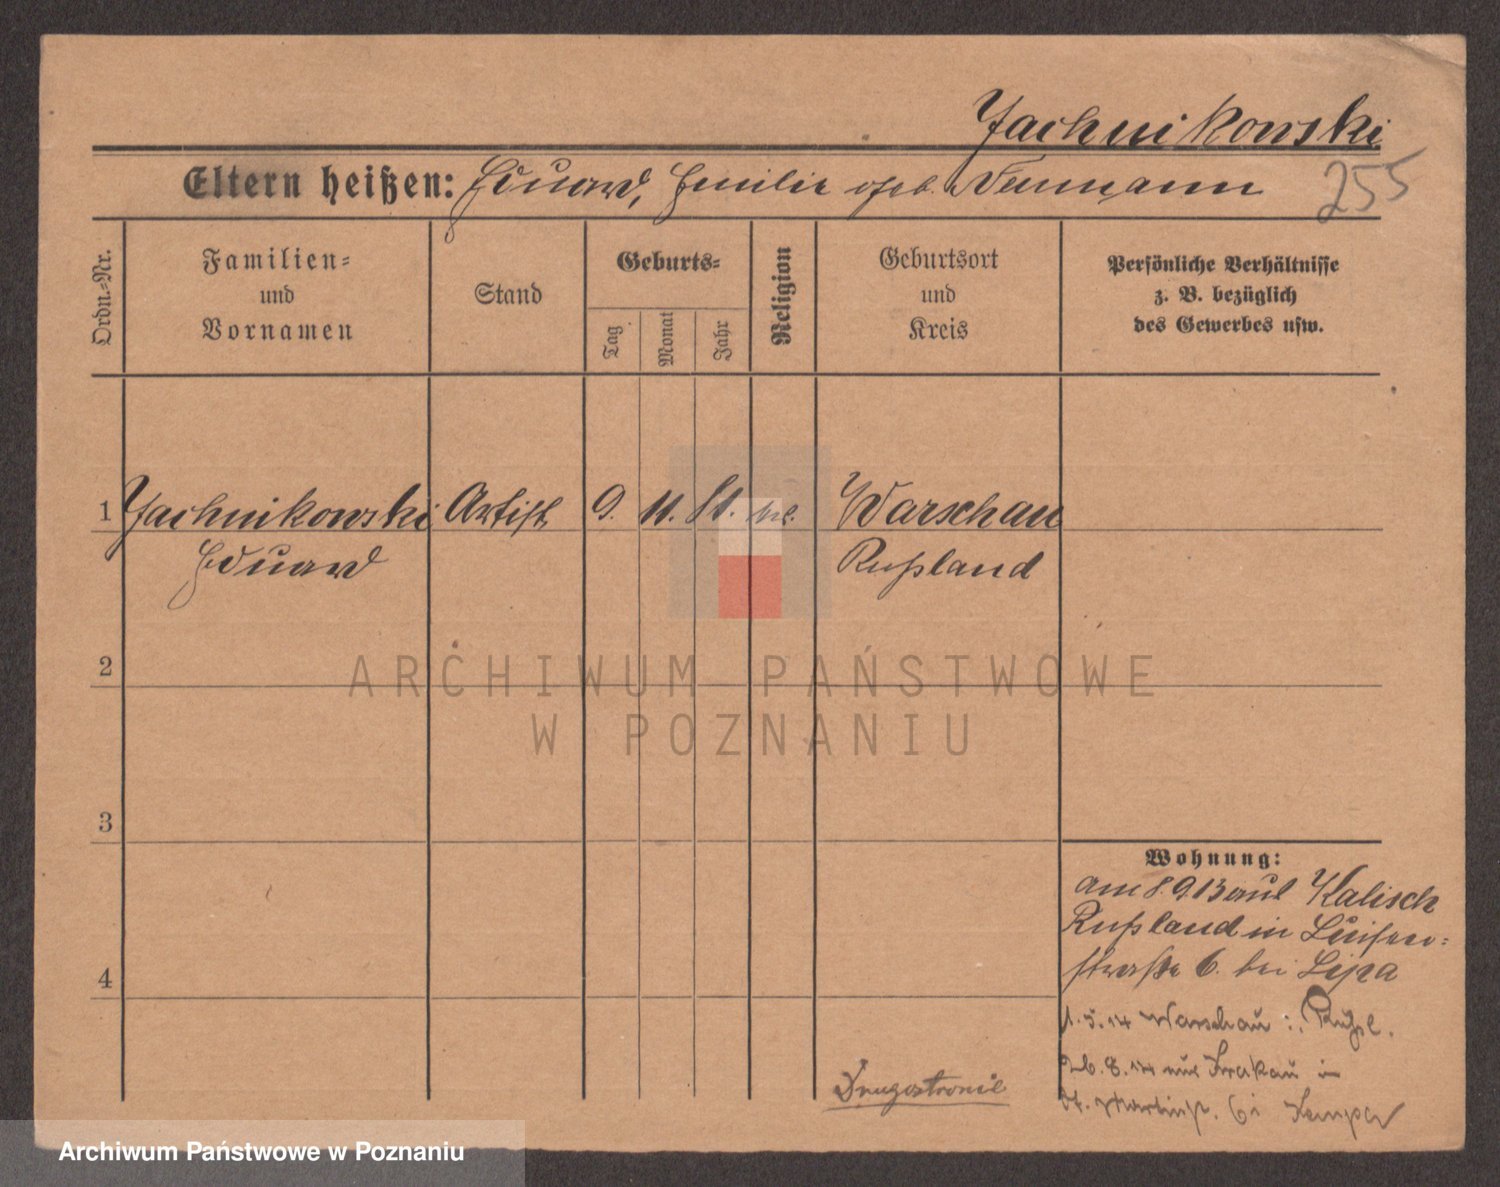 Jachnikowski
Eltern heißen: Eduard, Emilie geb. Neumann
255
Ordn.-Nr.
Familien-
und
Vornamen
Stand
Geburts-
Tag
Monat
Jahr
Religion
Geburtsort
und
Kreis
Persönliche Verhältnisse
z. B. bezüglich
des Gewerbes usw.
1 Jachnikowski Artist 9. 11. 81. Warschau
Eduard Rußland
2
3
4
Wohnung:
am 8.9.13 aus Kalisch
Rußland in Luisen-
straße 6. bei Lipa
1.5.14 Warschau Rußl.
26.8.14 aus Krakau in
St. Martinstr. 6
ARCHIWUM PAŃSTWOWE
W POZNANIU
Archiwum Państwowe w Poznaniu